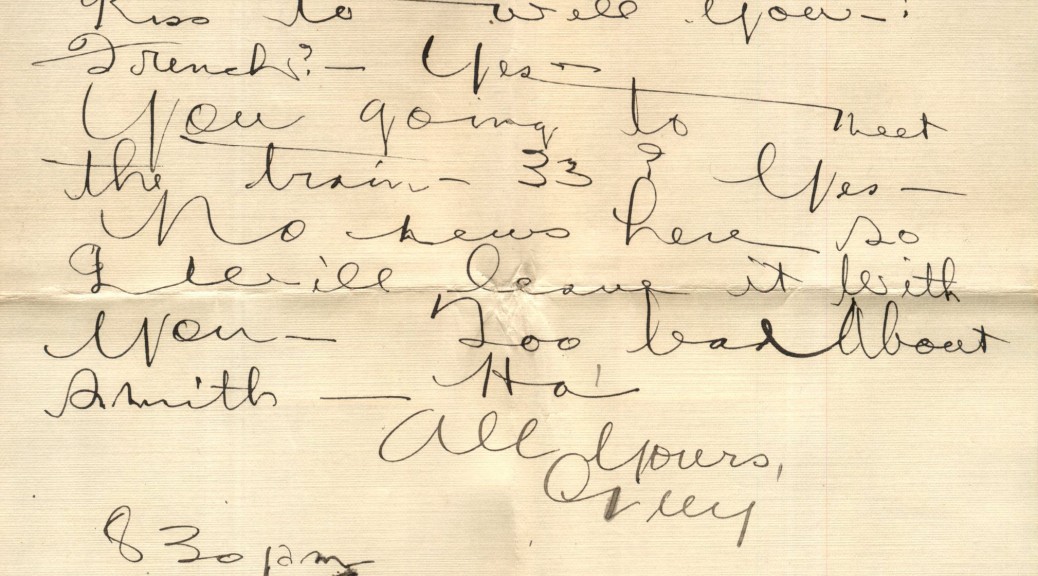 Kiss to — will you —?
French? — Yes —
You going to meet
the train — 33? Yes —
No news here — so
I will leave it with
you — Too bad About
Smith — Ha'
All Yours,
8 30 pm